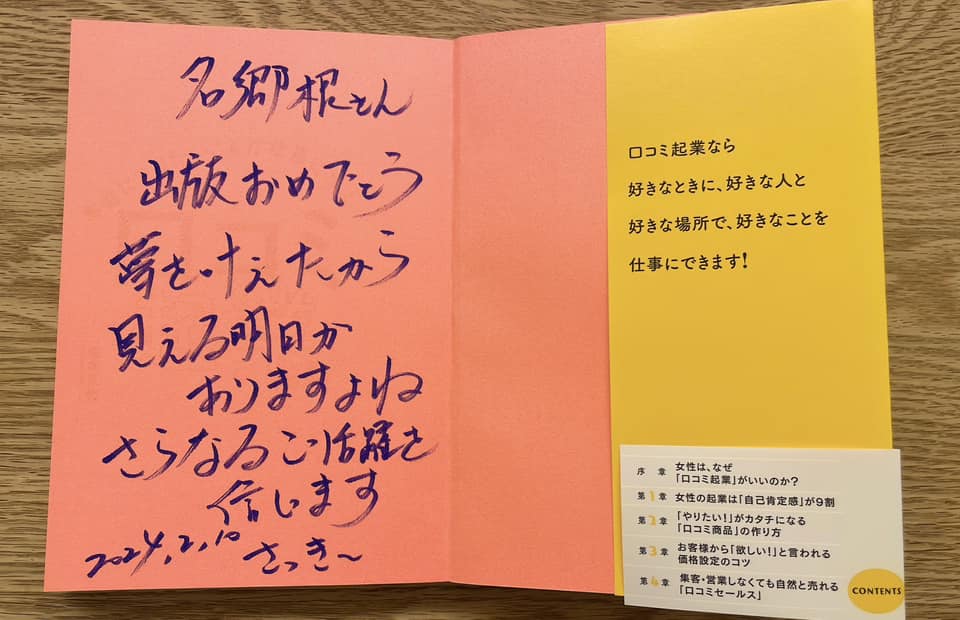 名郷根さん
出版おめでとう
夢を叶えたから
見える明日が
ありますよね
さらなるご活躍を
信じます
2024.2.10 さっき〜
口コミ起業なら
好きなときに、好きな人と
好きな場所で、好きなことを
仕事にできます!
序 章 女性は、なぜ
「口コミ起業」がいいのか?
第1章 女性の起業は「自己肯定感」が9割
第2章 「やりたい!」がカタチになる
「口コミ商品」の作り方
第3章 お客様から「欲しい!」と言われる
価格設定のコツ
第4章 集客・営業しなくても自然と売れる
「口コミセールス」
CONTENTS